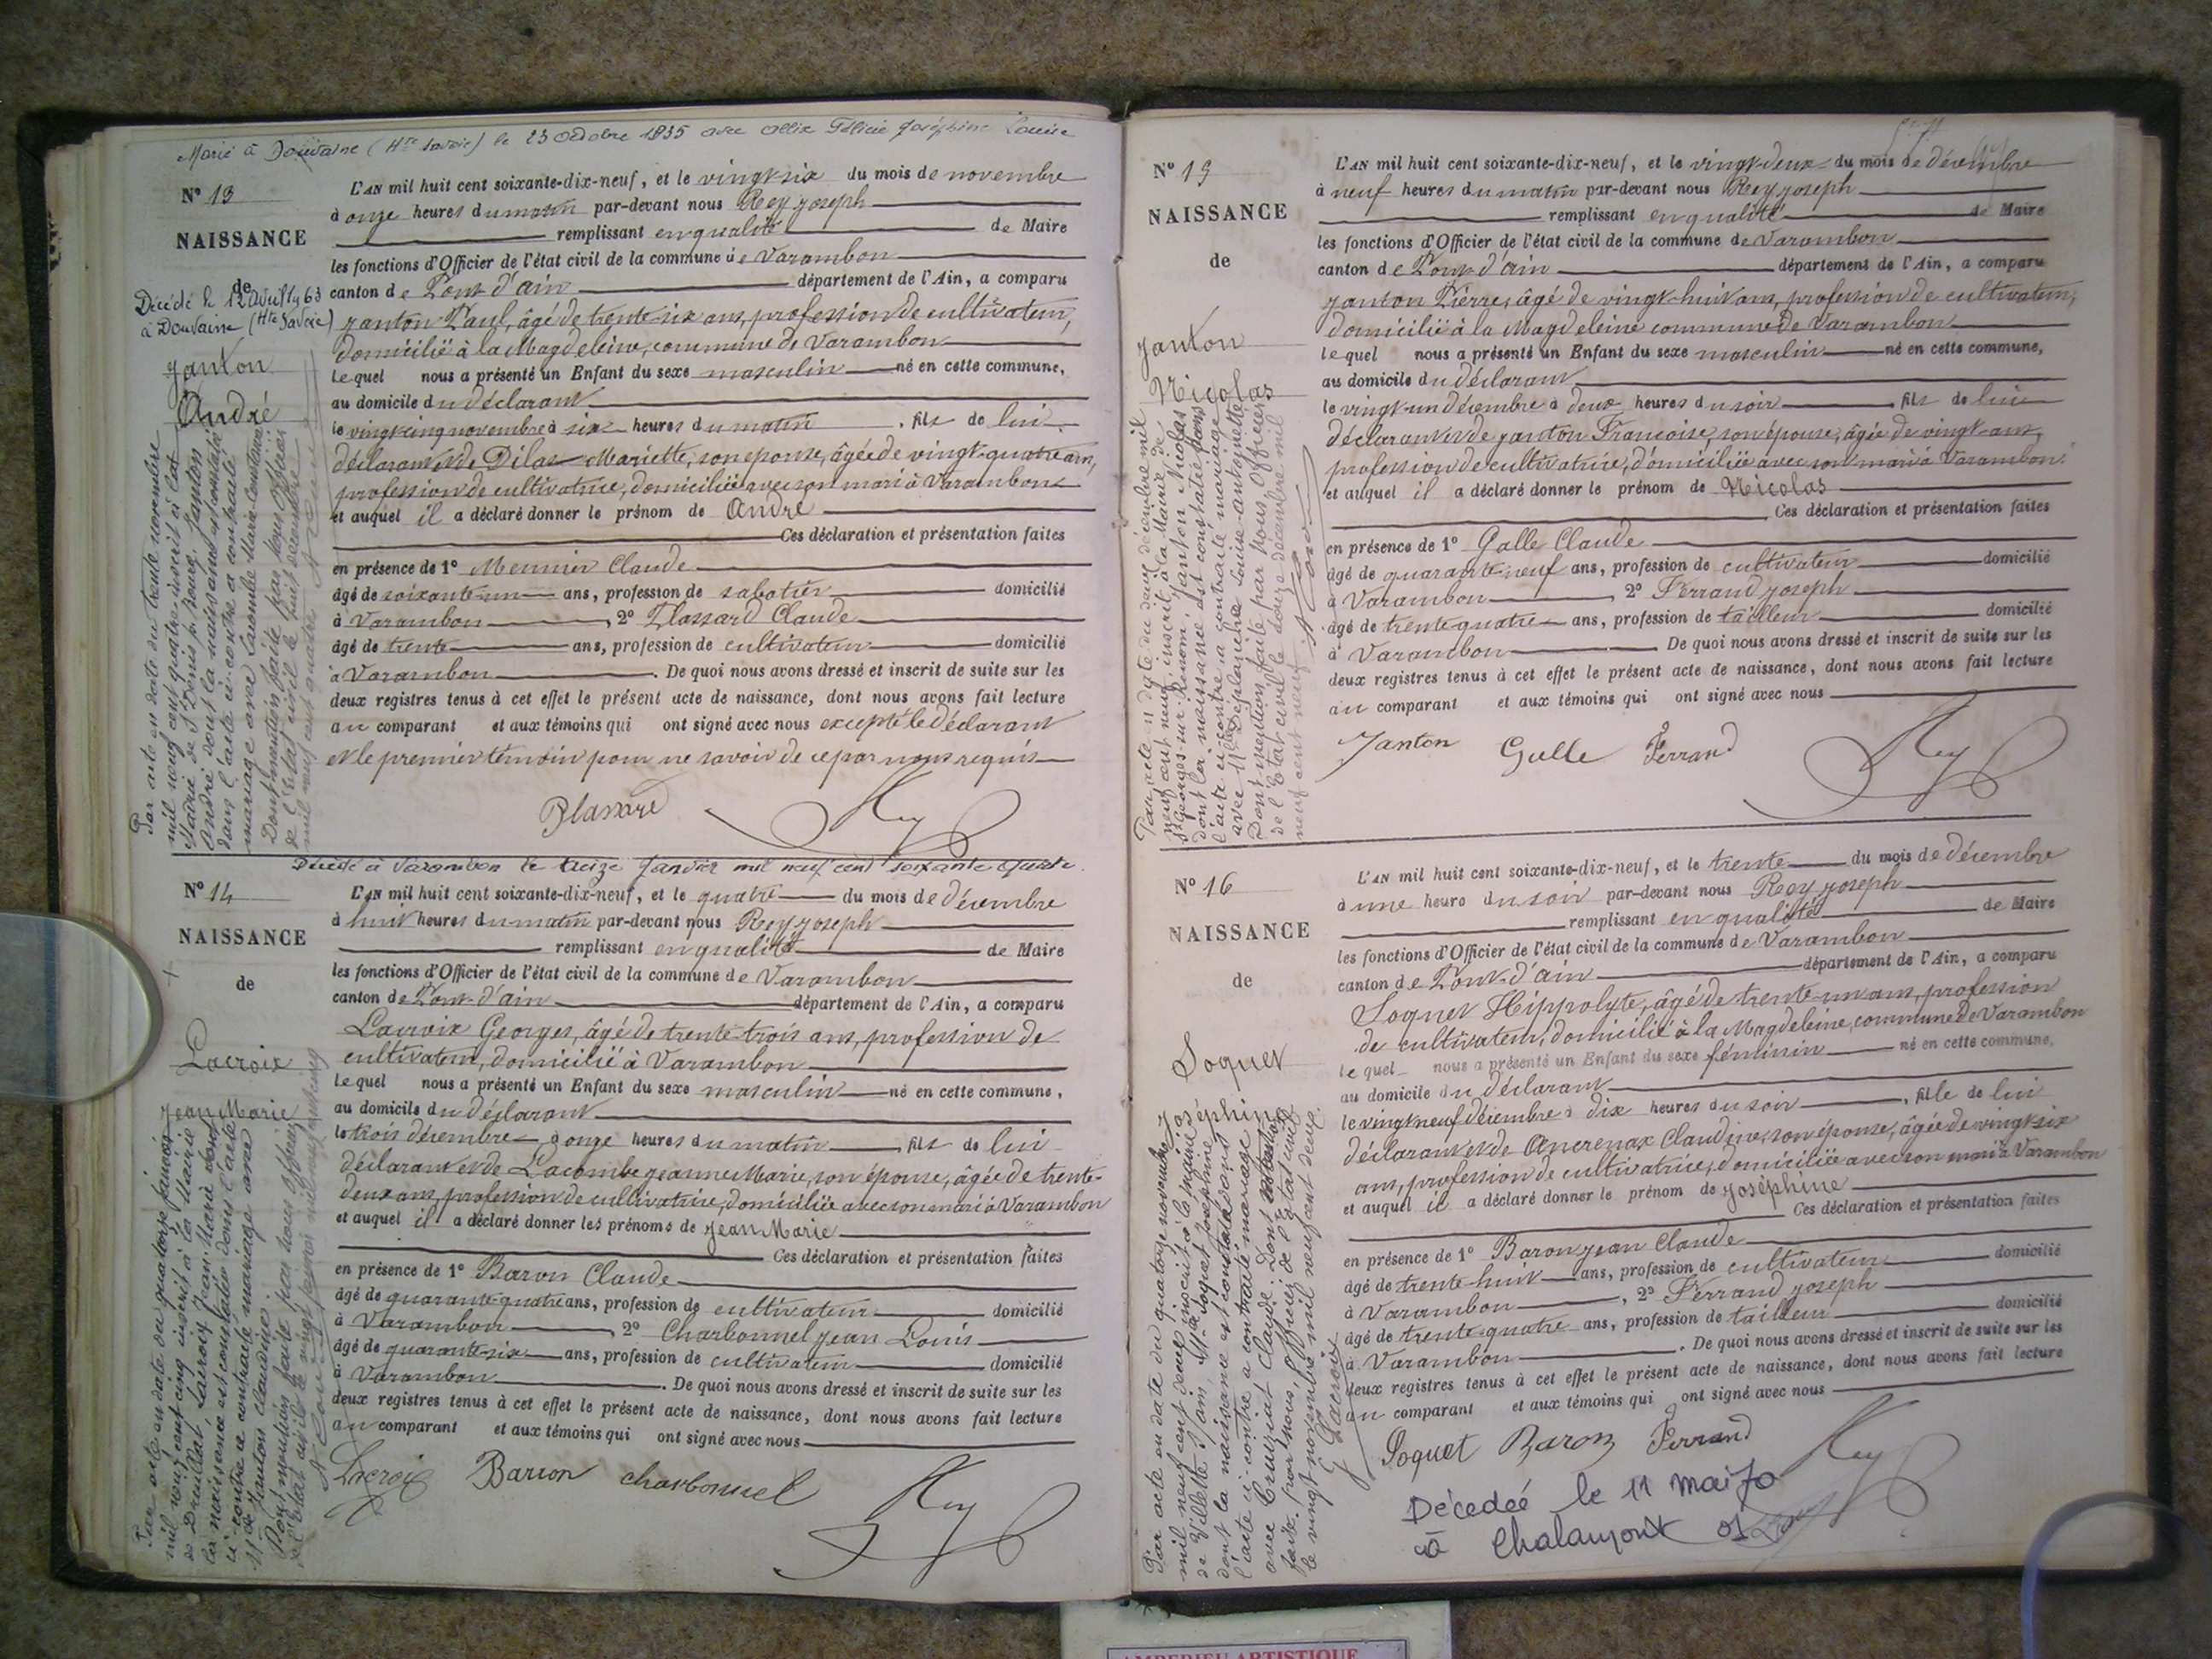 Marié à Douvaine (Hte Savoie) le 23 Octobre 1935 avec Félicie Joséphine Louise
N° 13
NAISSANCE
de
Décédé le 12 Avril 1963
à Douvaine (Hte Savoie)
Janton
André
Par acte en date du trente novembre
mil neuf cent quatre inscrit à l'état
André dont la naissance est constatée
dans l'acte ci-contre a contracté
mariage avec Lacombe Marie
Dont mention faite par nous Officier
de l'état civil le huit décembre
mil neuf cent quatre
L'AN mil huit cent soixante-dix-neuf, et le vingt-six du mois de novembre
à onze heures du matin par-devant nous Rey Joseph
remplissant en qualité de Maire
les fonctions d'Officier de l'état civil de la commune de Varambon
canton de Pont-d'ain département de l'Ain, a comparu
Janton Paul, âgé de trente-six ans, profession de cultivateur,
domicilié à la Magdeleine, commune de Varambon
lequel nous a présenté un Enfant du sexe masculin né en cette commune,
au domicile du déclarant
le vingt-cinq novembre à six heures du matin, fils de lui
déclarant et de Dilas Mariette, son épouse, âgée de vingt-quatre ans,
profession de cultivatrice, domiciliée avec son mari à Varambon
et auquel il a déclaré donner le prénom de André
Ces déclaration et présentation faites
en présence de 1° Meunier Claude
âgé de soixante-un ans, profession de sabotier domicilié
à Varambon, 2° Plassard Claude
âgé de trente ans, profession de cultivateur domicilié
à Varambon. De quoi nous avons dressé et inscrit de suite sur les
deux registres tenus à cet effet le présent acte de naissance, dont nous avons fait lecture
au comparant et aux témoins qui ont signé avec nous excepté le déclarant
et le premier témoin pour ne savoir de ce par nous requis
Plassard Rey
Décédé à Varambon le treize Janvier mil neuf cent soixante
N° 14
NAISSANCE
de
Lacroix
Jean Marie
Par acte en date du quatorze janvier
mil neuf cent cinq inscrit à la Mairie
de Druillat Lacroix Jean Marie dont
la naissance est constatée dans l'acte
ci-contre a contracté mariage avec
Mlle Janton Claudine
Dont mention faite par nous officier
de l'état civil le vingt janvier mil neuf cent cinq
L'AN mil huit cent soixante-dix-neuf, et le quatre du mois de décembre
à huit heures du matin par-devant nous Rey Joseph
remplissant en qualité de Maire
les fonctions d'Officier de l'état civil de la commune de Varambon
canton de Pont-d'ain département de l'Ain, a comparu
Lacroix Georges, âgé de trente-trois ans, profession de
cultivateur, domicilié à Varambon
lequel nous a présenté un Enfant du sexe masculin né en cette commune,
au domicile du déclarant
le trois décembre à onze heures du matin, fils de lui
déclarant et de Lacombe Jeanne Marie, son épouse, âgée de trente-
deux ans, profession de cultivatrice, domiciliée avec son mari à Varambon
et auquel il a déclaré donner les prénoms de Jean Marie
Ces déclaration et présentation faites
en présence de 1° Baron Claude
âgé de quarante-quatre ans, profession de cultivateur domicilié
à Varambon, 2° Charbonnel Jean Louis
âgé de quarante-six ans, profession de cultivateur domicilié
à Varambon. De quoi nous avons dressé et inscrit de suite sur les
deux registres tenus à cet effet le présent acte de naissance, dont nous avons fait lecture
au comparant et aux témoins qui ont signé avec nous
Lacroix Baron Charbonnel Rey
N° 15
NAISSANCE
de
Janton
Nicolas
Par acte en date du deux décembre mil
neuf cent neuf, inscrit à la Mairie de
St Georges-sur-Renom, Janton Nicolas
dont la naissance est constatée dans
l'acte ci-contre a contracté mariage
avec Mlle Deplanche Louise Antoinette
Dont mention faite par Nous, Officier
de l'état civil le douze décembre mil
neuf cent neuf
L'AN mil huit cent soixante-dix-neuf, et le vingt-deux du mois de décembre
à neuf heures du matin par-devant nous Rey Joseph
remplissant en qualité de Maire
les fonctions d'Officier de l'état civil de la commune de Varambon
canton de Pont-d'ain département de l'Ain, a comparu
Janton Pierre, âgé de vingt-huit ans, profession de cultivateur,
domicilié à la Magdeleine commune de Varambon
lequel nous a présenté un Enfant du sexe masculin né en cette commune,
au domicile du déclarant
le vingt-un décembre à deux heures du soir, fils de lui
déclarant et de Janton Françoise, son épouse, âgée de vingt ans,
profession de cultivatrice, domiciliée avec son mari à Varambon
et auquel il a déclaré donner le prénom de Nicolas
Ces déclaration et présentation faites
en présence de 1° Galle Claude
âgé de quarante-neuf ans, profession de cultivateur domicilié
à Varambon, 2° Ferrand Joseph
âgé de trente-quatre ans, profession de tailleur domicilié
à Varambon De quoi nous avons dressé et inscrit de suite sur les
deux registres tenus à cet effet le présent acte de naissance, dont nous avons fait lecture
au comparant et aux témoins qui ont signé avec nous
Janton Galle Ferrand Rey
N° 16
NAISSANCE
de
Soquet
Joséphine
Par acte en date du quatorze novembre
mil neuf cent deux inscrit à la mairie
de Villette (Ain), Mlle Soquet Joséphine
dont la naissance est constatée dans
l'acte ci-contre a contracté mariage
avec Cruiziat Claude. Dont mention
faite par nous, Officier de l'état civil
le vingt novembre mil neuf cent deux.
J. Lacroix
L'AN mil huit cent soixante-dix-neuf, et le trente du mois de décembre
à une heure du soir par-devant nous Rey Joseph
remplissant en qualité de Maire
les fonctions d'Officier de l'état civil de la commune de Varambon
canton de Pont-d'ain département de l'Ain, a comparu
Soquet Hippolyte, âgé de trente-un ans, profession
de cultivateur, domicilié à la Magdeleine, commune de Varambon
lequel nous a présenté un Enfant du sexe féminin né en cette commune,
au domicile du déclarant
le vingt neuf décembre à dix heures du soir, fille de lui
déclarant et de Ancrenaz Claudine, son épouse, âgée de vingt-six
ans, profession de cultivatrice, domiciliée avec son mari à Varambon
et auquel il a déclaré donner le prénom de Joséphine
Ces déclaration et présentation faites
en présence de 1° Baron Jean Claude
âgé de trente-huit ans, profession de cultivateur domicilié
à Varambon, 2° Ferrand Joseph
âgé de trente-quatre ans, profession de tailleur domicilié
à Varambon. De quoi nous avons dressé et inscrit de suite sur les
deux registres tenus à cet effet le présent acte de naissance, dont nous avons fait lecture
au comparant et aux témoins qui ont signé avec nous
Soquet Baron Ferrand Rey
Décédée le 11 mai 70
à Chalamont 01
AMBERIEU ARTISTIQUE